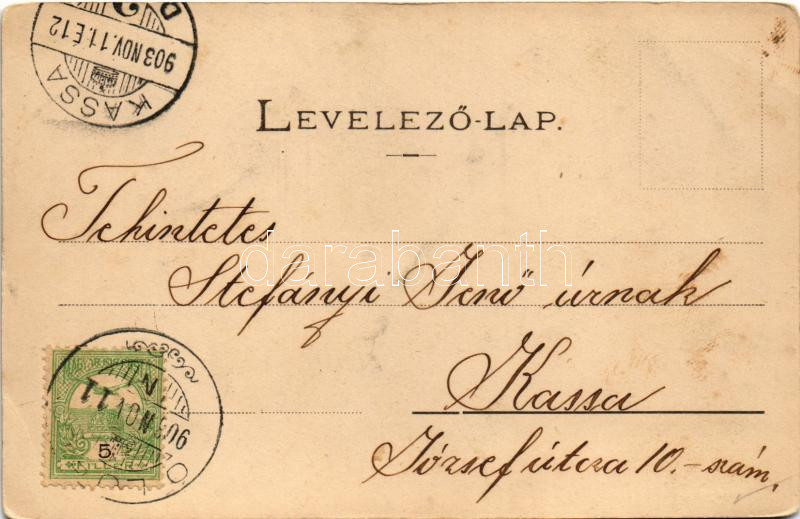 903 NOV. 11. É 12
KASSA
LEVELEZŐ-LAP.
Tekintetes
Stefányi Jenő úrnak
Kassa
József útcza 10.-szám.
darabanth
903 NOV 11
5